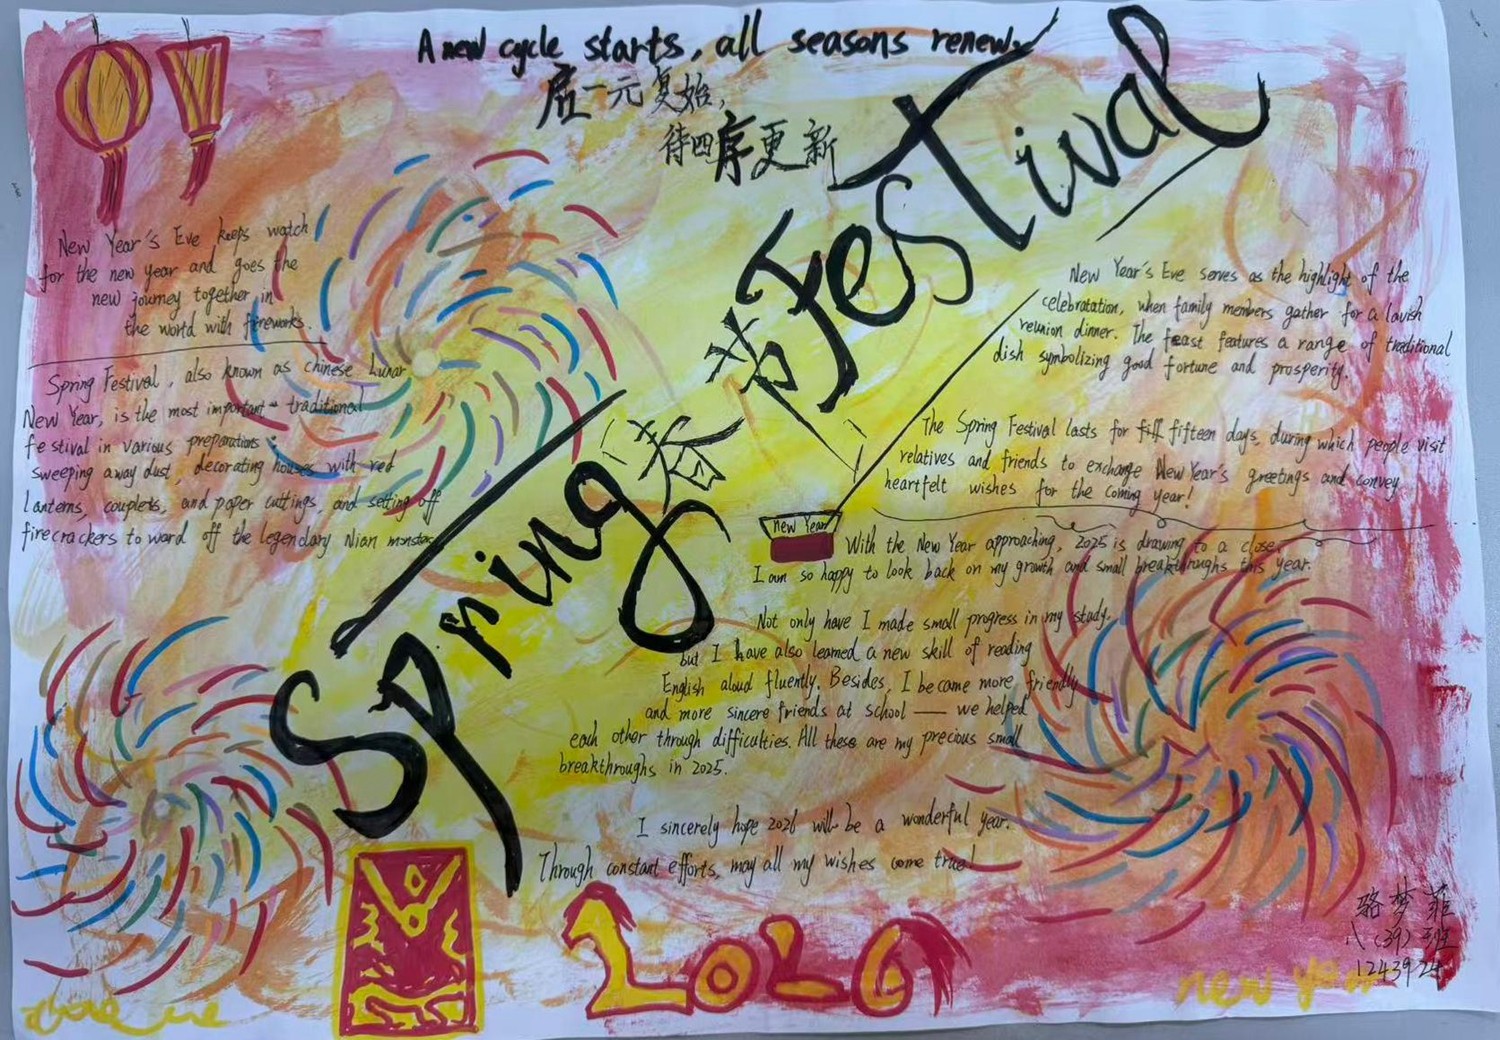 A new cycle starts, all seasons renew.
启一元复始,
待四序更新
Spring 春
节 Festival
New Year's Eve keeps watch
for the new year and goes the
new journey together in
the world with fireworks.
Spring Festival, also known as chinese Lunar
New Year, is the most important traditional
festival in various preparations:
sweeping away dust, decorating houses with red
lantems, couplets, and paper cuttings, and setting off
firecrackers to ward off the legendary Nian monster.
New Year's Eve serves as the highlight of the
celebratation, when family members gather for a lavish
reunion dinner. The feast features a range of traditional
dish symbolizing good fortune and prosperity.
The Spring Festival lasts for fifteen days, during which people visit
relatives and friends to exchange New Year's greetings and convey
heartfelt wishes for the coming year!
new Year
With the New Year approaching, 2025 is drawing to a close.
I am so happy to look back on my growth and small breakthroughs this year.
Not only have I made small progress in my study,
but I have also learned a new skill of reading
English aloud fluently. Besides, I become more friendly
and more sincere friends at school — we helped
each other through difficulties. All these are my precious small
breakthroughs in 2025.
I sincerely hope 2026 will be a wonderful year.
Through constant efforts, may all my wishes come true!
2026
骆梦菲
八(39)班
1243924
new Year